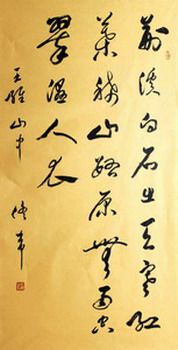 荆溪白石出天寒红
葉稀山路原無雨空
翠湿人衣
王維山中